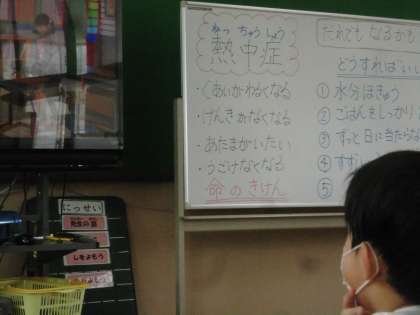 ねっ ちゅう しょう
熱中症
・ぐあいがわるくなる
・げんきがなくなる
・あたまがいたい
・うごけなくなる
命のきけん
だれでも なるかも
どうすれば いい
① 水分ほきゅう
② ごはんをしっかり
③ ずっと日に当たらな
④ すずし
⑤
にっせい
しをよもう